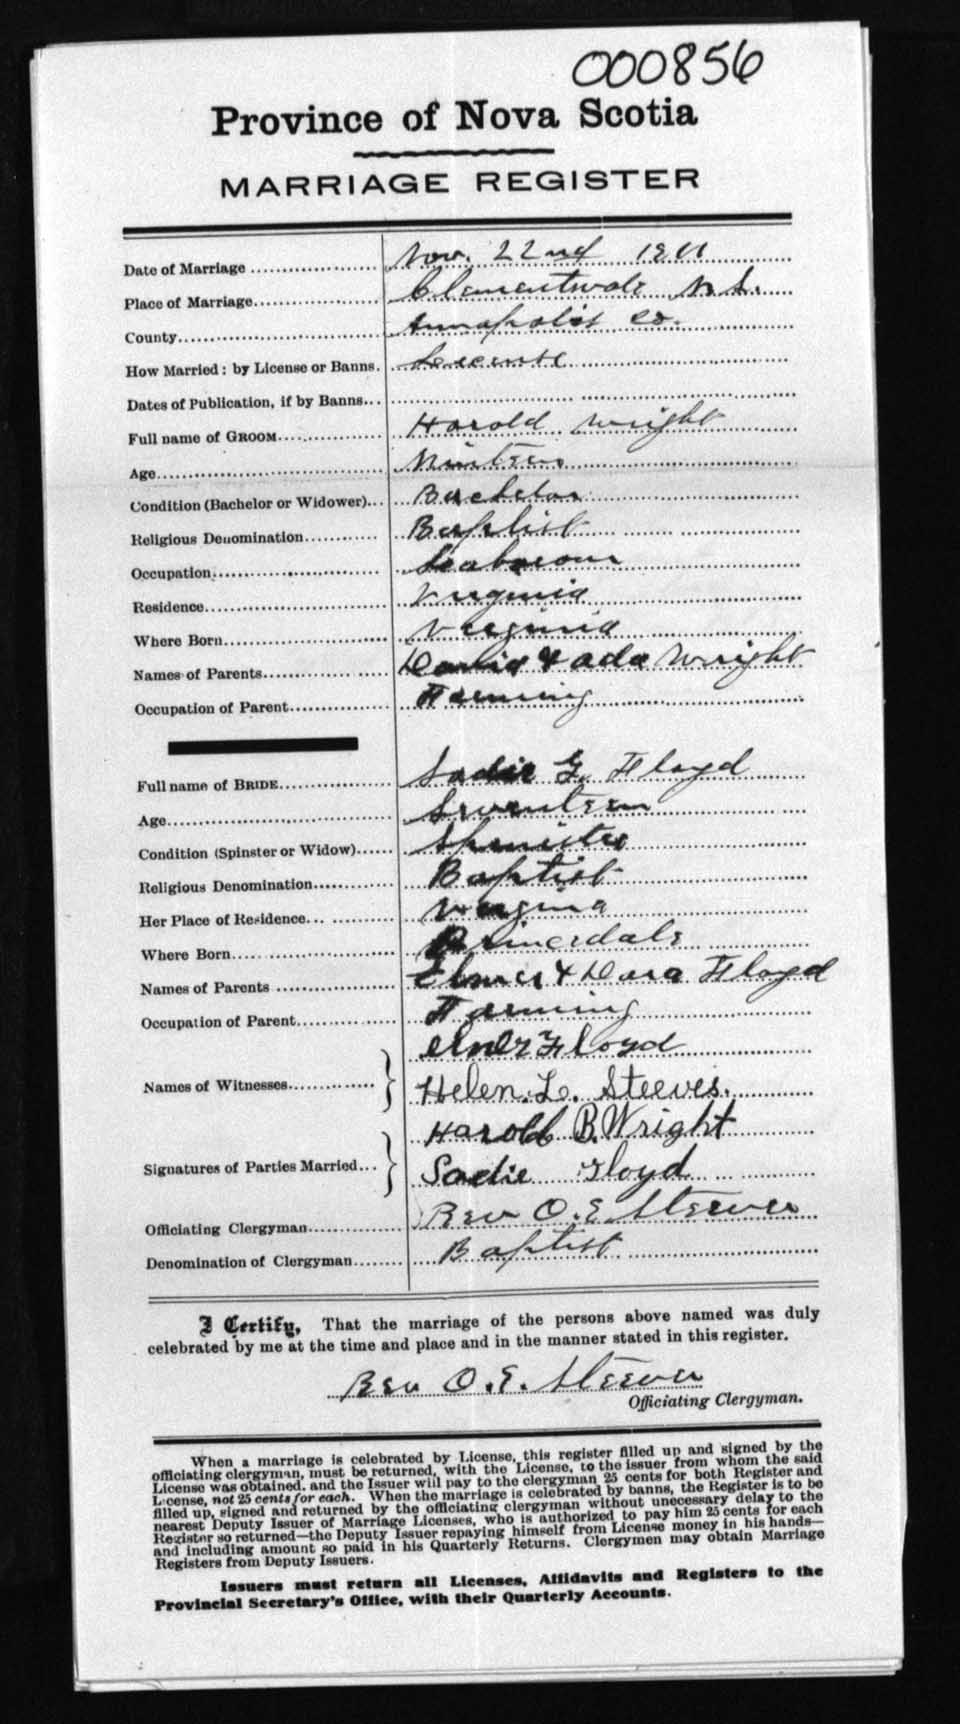 000856
Province of Nova Scotia
MARRIAGE REGISTER
Date of Marriage Nov. 22nd 1911
Place of Marriage Clementsvale N.S.
County Annapolis Co.
How Married: by License or Banns. License
Dates of Publication, if by Banns
Full name of GROOM Harold Wright
Age Ninteen
Condition (Bachelor or Widower) Bachelor
Religious Denomination Baptist
Occupation
Residence Virginia
Where Born Virginia
Names of Parents & Ada Wright
Occupation of Parent Farming
Full name of BRIDE Sadie G. Floyd
Age Seventeen
Condition (Spinster or Widow) Spinster
Religious Denomination Baptist
Her Place of Residence Virginia
Where Born
Names of Parents Elmer & Dora Floyd
Occupation of Parent Farming
Elmer Floyd
Names of Witnesses Helen. L. Steeves.
Harold B. Wright
Signatures of Parties Married Sadie Floyd
Officiating Clergyman Rev O. E. Steeves
Denomination of Clergyman Baptist
I Certify, That the marriage of the persons above named was duly
celebrated by me at the time and place and in the manner stated in this register.
Rev O. E. Steeves
Officiating Clergyman.
When a marriage is celebrated by License, this register filled up and signed by the
officiating clergyman, must be returned, with the License, to the issuer from whom the said
License was obtained, and the Issuer will pay to the clergyman 25 cents for both Register and
License, not 25 cents for each. When the marriage is celebrated by banns, the Register is to be
filled up, signed and returned by the officiating clergyman without unnecessary delay to the
nearest Deputy Issuer of Marriage Licenses, who is authorized to pay him 25 cents for each
Register so returned—the Deputy Issuer repaying himself from License money in his hands—
and including amount so paid in his Quarterly Returns. Clergymen may obtain Marriage
Registers from Deputy Issuers.
Issuers must return all Licenses, Affidavits and Registers to the
Provincial Secretary's Office, with their Quarterly Accounts.